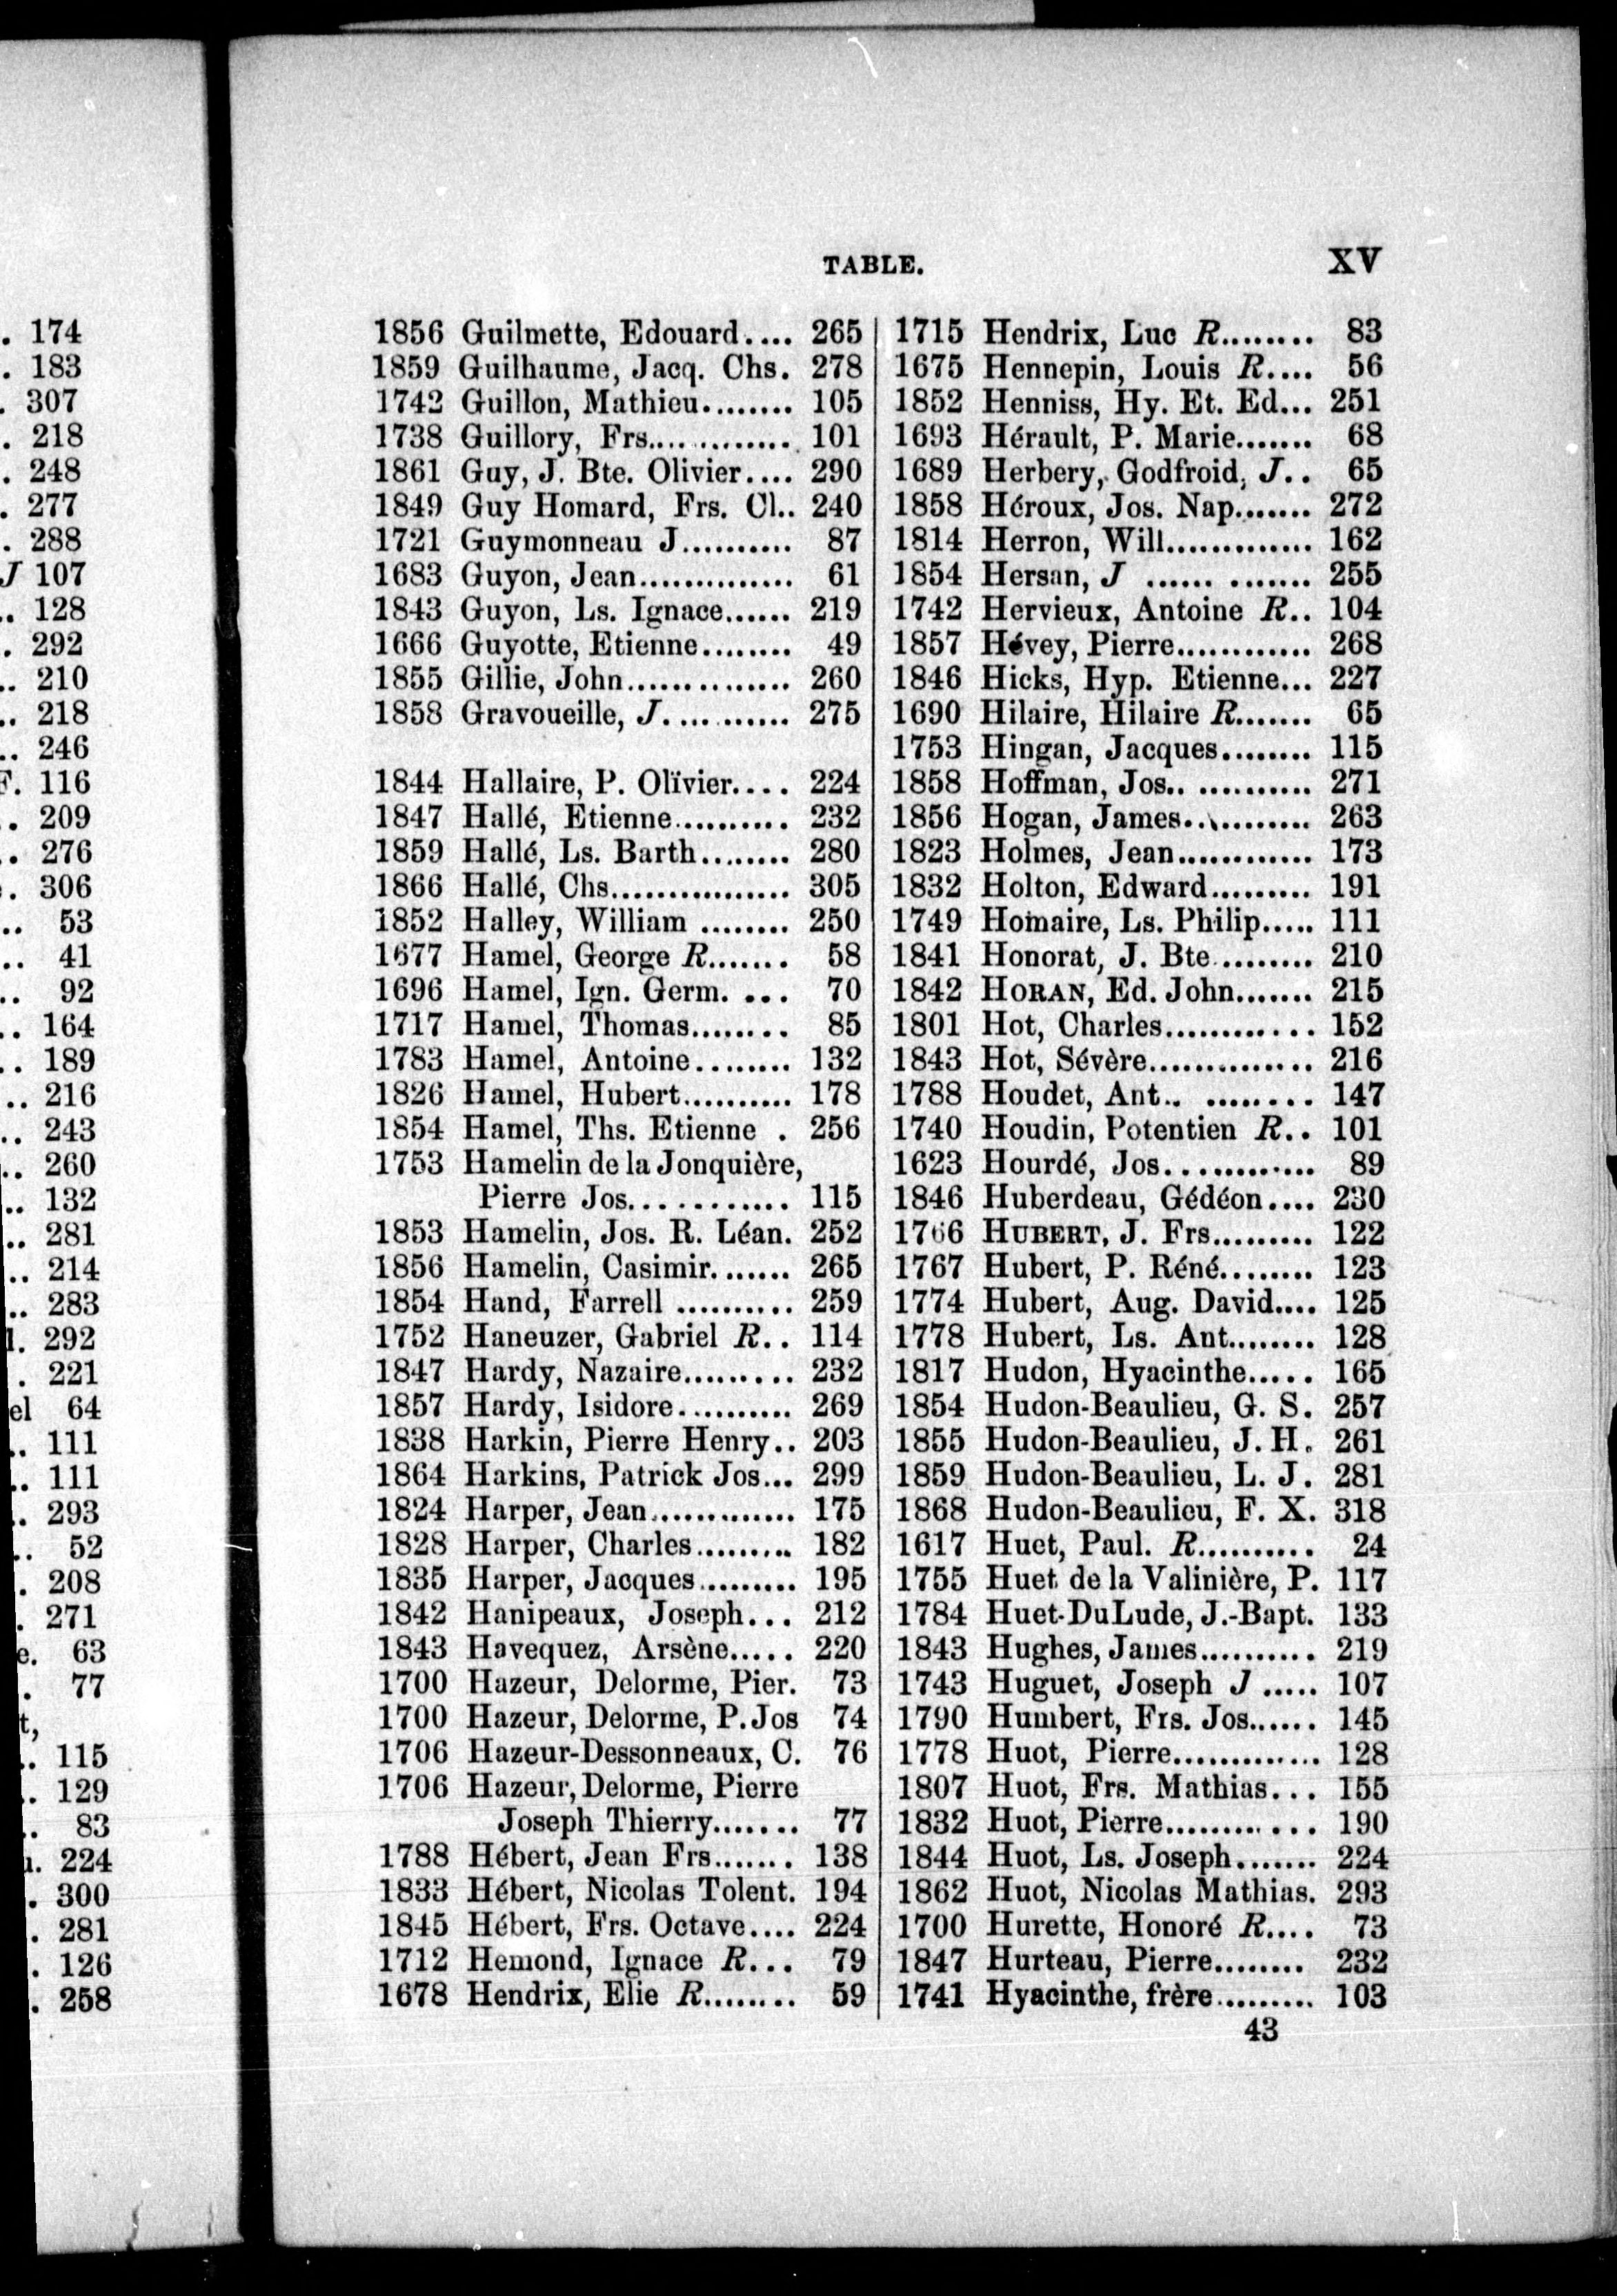 . 174
. 183
. 307
. 218
. 248
. 277
. 288
J 107
.. 128
. 292
.. 210
.. 218
.. 246
F. 116
. 209
. 276
. 306
.. 53
.. 41
.. 92
.. 164
.. 189
.. 216
.. 243
.. 260
.. 132
.. 281
.. 214
.. 283
l. 292
. 221
el 64
.. 111
.. 111
.. 293
.. 52
. 208
. 271
e. 63
. 77
t,
.. 115
.. 129
.. 83
. 224
. 300
. 281
. 126
. 258
TABLE. XV
1856 Guilmette, Edouard.... 265
1859 Guilhaume, Jacq. Chs. 278
1742 Guillon, Mathieu........ 105
1738 Guillory, Frs............. 101
1861 Guy, J. Bte. Olivier.... 290
1849 Guy Homard, Frs. Cl.. 240
1721 Guymonneau J.......... 87
1683 Guyon, Jean.............. 61
1843 Guyon, Ls. Ignace...... 219
1666 Guyotte, Etienne........ 49
1855 Gillie, John............... 260
1858 Gravoueille, J........... 275
1844 Hallaire, P. Olivier.... 224
1847 Hallé, Etienne.......... 232
1859 Hallé, Ls. Barth........ 280
1866 Hallé, Chs................ 305
1852 Halley, William ........ 250
1677 Hamel, George R....... 58
1696 Hamel, Ign. Germ. ... 70
1717 Hamel, Thomas........ 85
1783 Hamel, Antoine........ 132
1826 Hamel, Hubert.......... 178
1854 Hamel, Ths. Etienne . 256
1753 Hamelin de la Jonquière,
Pierre Jos............ 115
1853 Hamelin, Jos. R. Léan. 252
1856 Hamelin, Casimir....... 265
1854 Hand, Farrell .......... 259
1752 Haneuzer, Gabriel R.. 114
1847 Hardy, Nazaire......... 232
1857 Hardy, Isidore.......... 269
1838 Harkin, Pierre Henry.. 203
1864 Harkins, Patrick Jos... 299
1824 Harper, Jean............. 175
1828 Harper, Charles......... 182
1835 Harper, Jacques......... 195
1842 Hanipeaux, Joseph... 212
1843 Havequez, Arsène..... 220
1700 Hazeur, Delorme, Pier. 73
1700 Hazeur, Delorme, P. Jos 74
1706 Hazeur-Dessonneaux, C. 76
1706 Hazeur, Delorme, Pierre
Joseph Thierry....... 77
1788 Hébert, Jean Frs....... 138
1833 Hébert, Nicolas Tolent. 194
1845 Hébert, Frs. Octave.... 224
1712 Hemond, Ignace R... 79
1678 Hendrix, Elie R........ 59
1715 Hendrix, Luc R........ 83
1675 Hennepin, Louis R.... 56
1852 Henniss, Hy. Et. Ed... 251
1693 Hérault, P. Marie....... 68
1689 Herbery, Godfroid, J.. 65
1858 Héroux, Jos. Nap....... 272
1814 Herron, Will............. 162
1854 Hersan, J ...... ....... 255
1742 Hervieux, Antoine R.. 104
1857 Hévey, Pierre............ 268
1846 Hicks, Hyp. Etienne... 227
1690 Hilaire, Hilaire R....... 65
1753 Hingan, Jacques........ 115
1858 Hoffman, Jos.. .......... 271
1856 Hogan, James........... 263
1823 Holmes, Jean............ 173
1832 Holton, Edward......... 191
1749 Homaire, Ls. Philip..... 111
1841 Honorat, J. Bte......... 210
1842 HORAN, Ed. John....... 215
1801 Hot, Charles............ 152
1843 Hot, Sévère.............. 216
1788 Houdet, Ant.. ........ 147
1740 Houdin, Potentien R.. 101
1623 Hourdé, Jos............ 89
1846 Huberdeau, Gédéon.... 230
1766 HUBERT, J. Frs......... 122
1767 Hubert, P. Réné........ 123
1774 Hubert, Aug. David.... 125
1778 Hubert, Ls. Ant........ 128
1817 Hudon, Hyacinthe..... 165
1854 Hudon-Beaulieu, G. S. 257
1855 Hudon-Beaulieu, J. H. 261
1859 Hudon-Beaulieu, L. J. 281
1868 Hudon-Beaulieu, F. X. 318
1617 Huet, Paul. R.......... 24
1755 Huet de la Valinière, P. 117
1784 Huet-DuLude, J.-Bapt. 133
1843 Hughes, James.......... 219
1743 Huguet, Joseph J ..... 107
1790 Humbert, Frs. Jos...... 145
1778 Huot, Pierre............. 128
1807 Huot, Frs. Mathias... 155
1832 Huot, Pierre............ 190
1844 Huot, Ls. Joseph....... 224
1862 Huot, Nicolas Mathias. 293
1700 Hurette, Honoré R.... 73
1847 Hurteau, Pierre........ 232
1741 Hyacinthe, frère......... 103
43